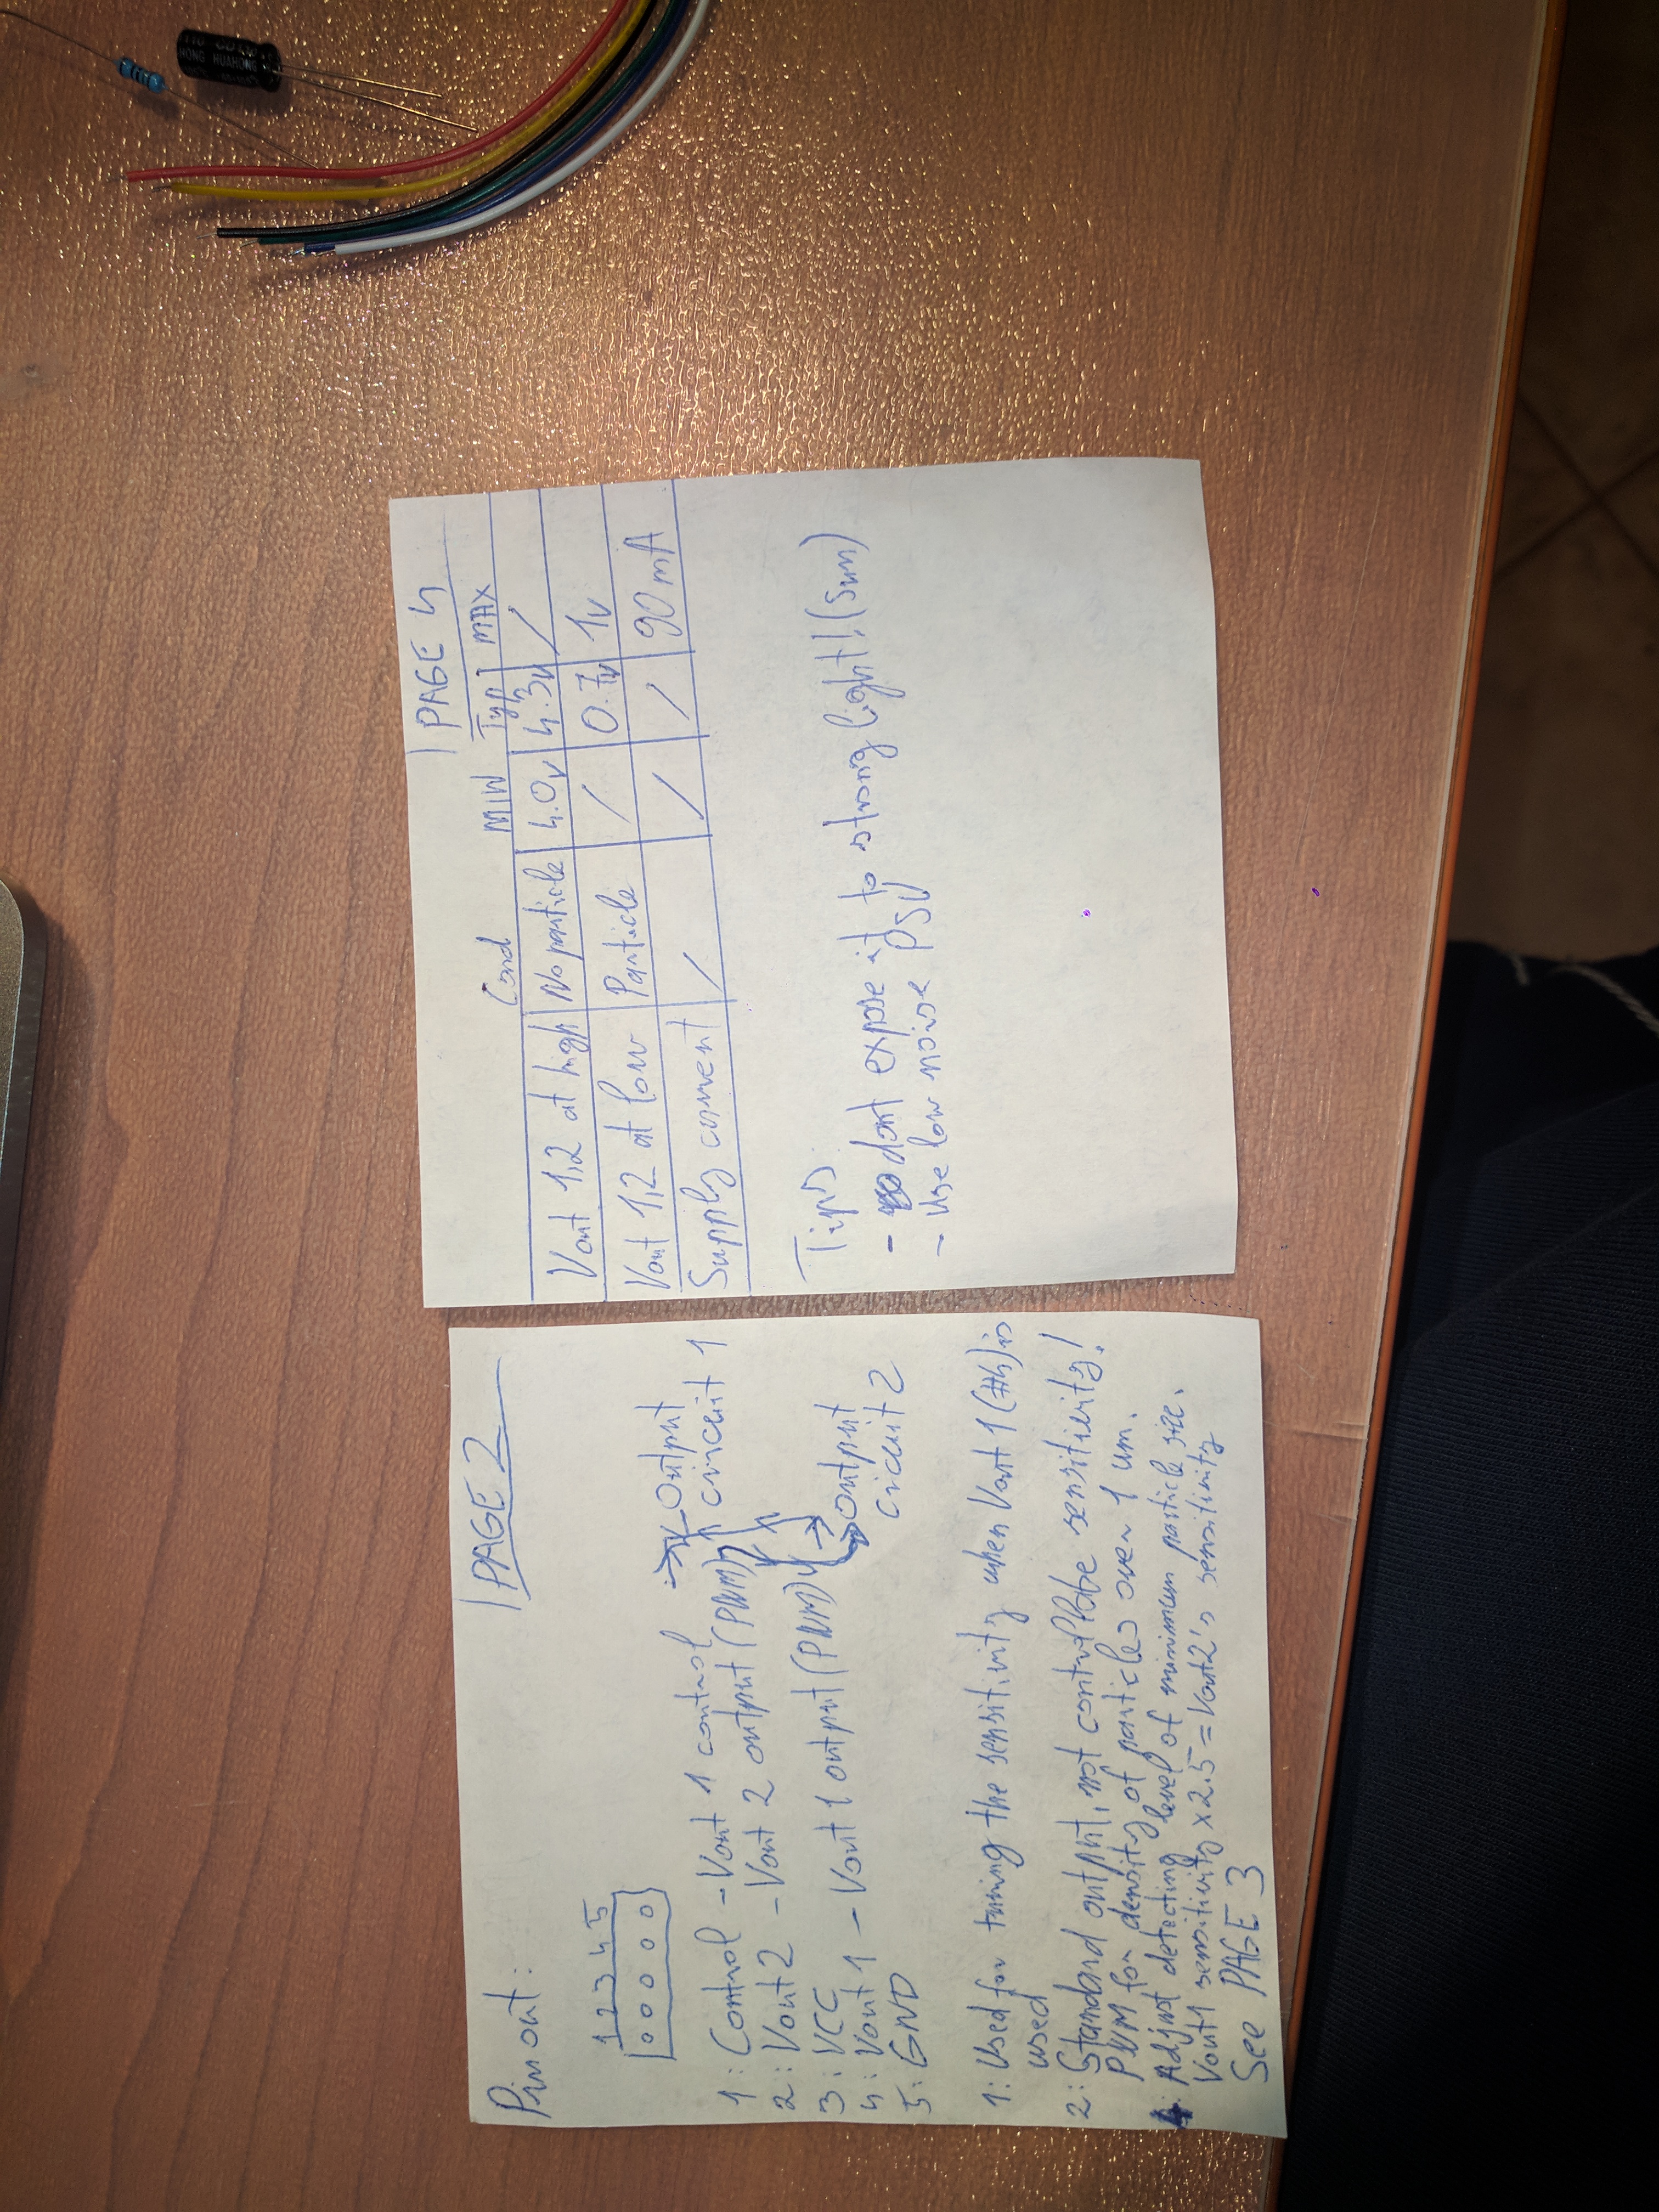 PAGE 2
Pinout:
1 2 3 4 5
1: Control - Vout 1 control
2: Vout 2 - Vout 2 output (PWM)
3: VCC
4: Vout 1 - Vout 1 output (PWM)
5: GND
Output
circuit 1
output
circuit 2
1: Used for tuning the sensitivity when Vout 1 (#4) is
used
2: Standard output, not controllabe sensitivity!
PWM for density of particles over 1 um.
4: Adjust detecting level of minimum particle size.
Vout1 sensitivity x 2.5 = Vout2's sensitivity
See PAGE 3
PAGE 4
Cond MIN Typ MAX
Vout 1,2 at high No particle 4.0v 4.3v /
Vout 1,2 at low Particle / 0.7v 1v
Supply current / / / 90 mA
Tips:
- dont expose it to strong light! (Sun)
- Use low noise PSU
HONG HUAHONG